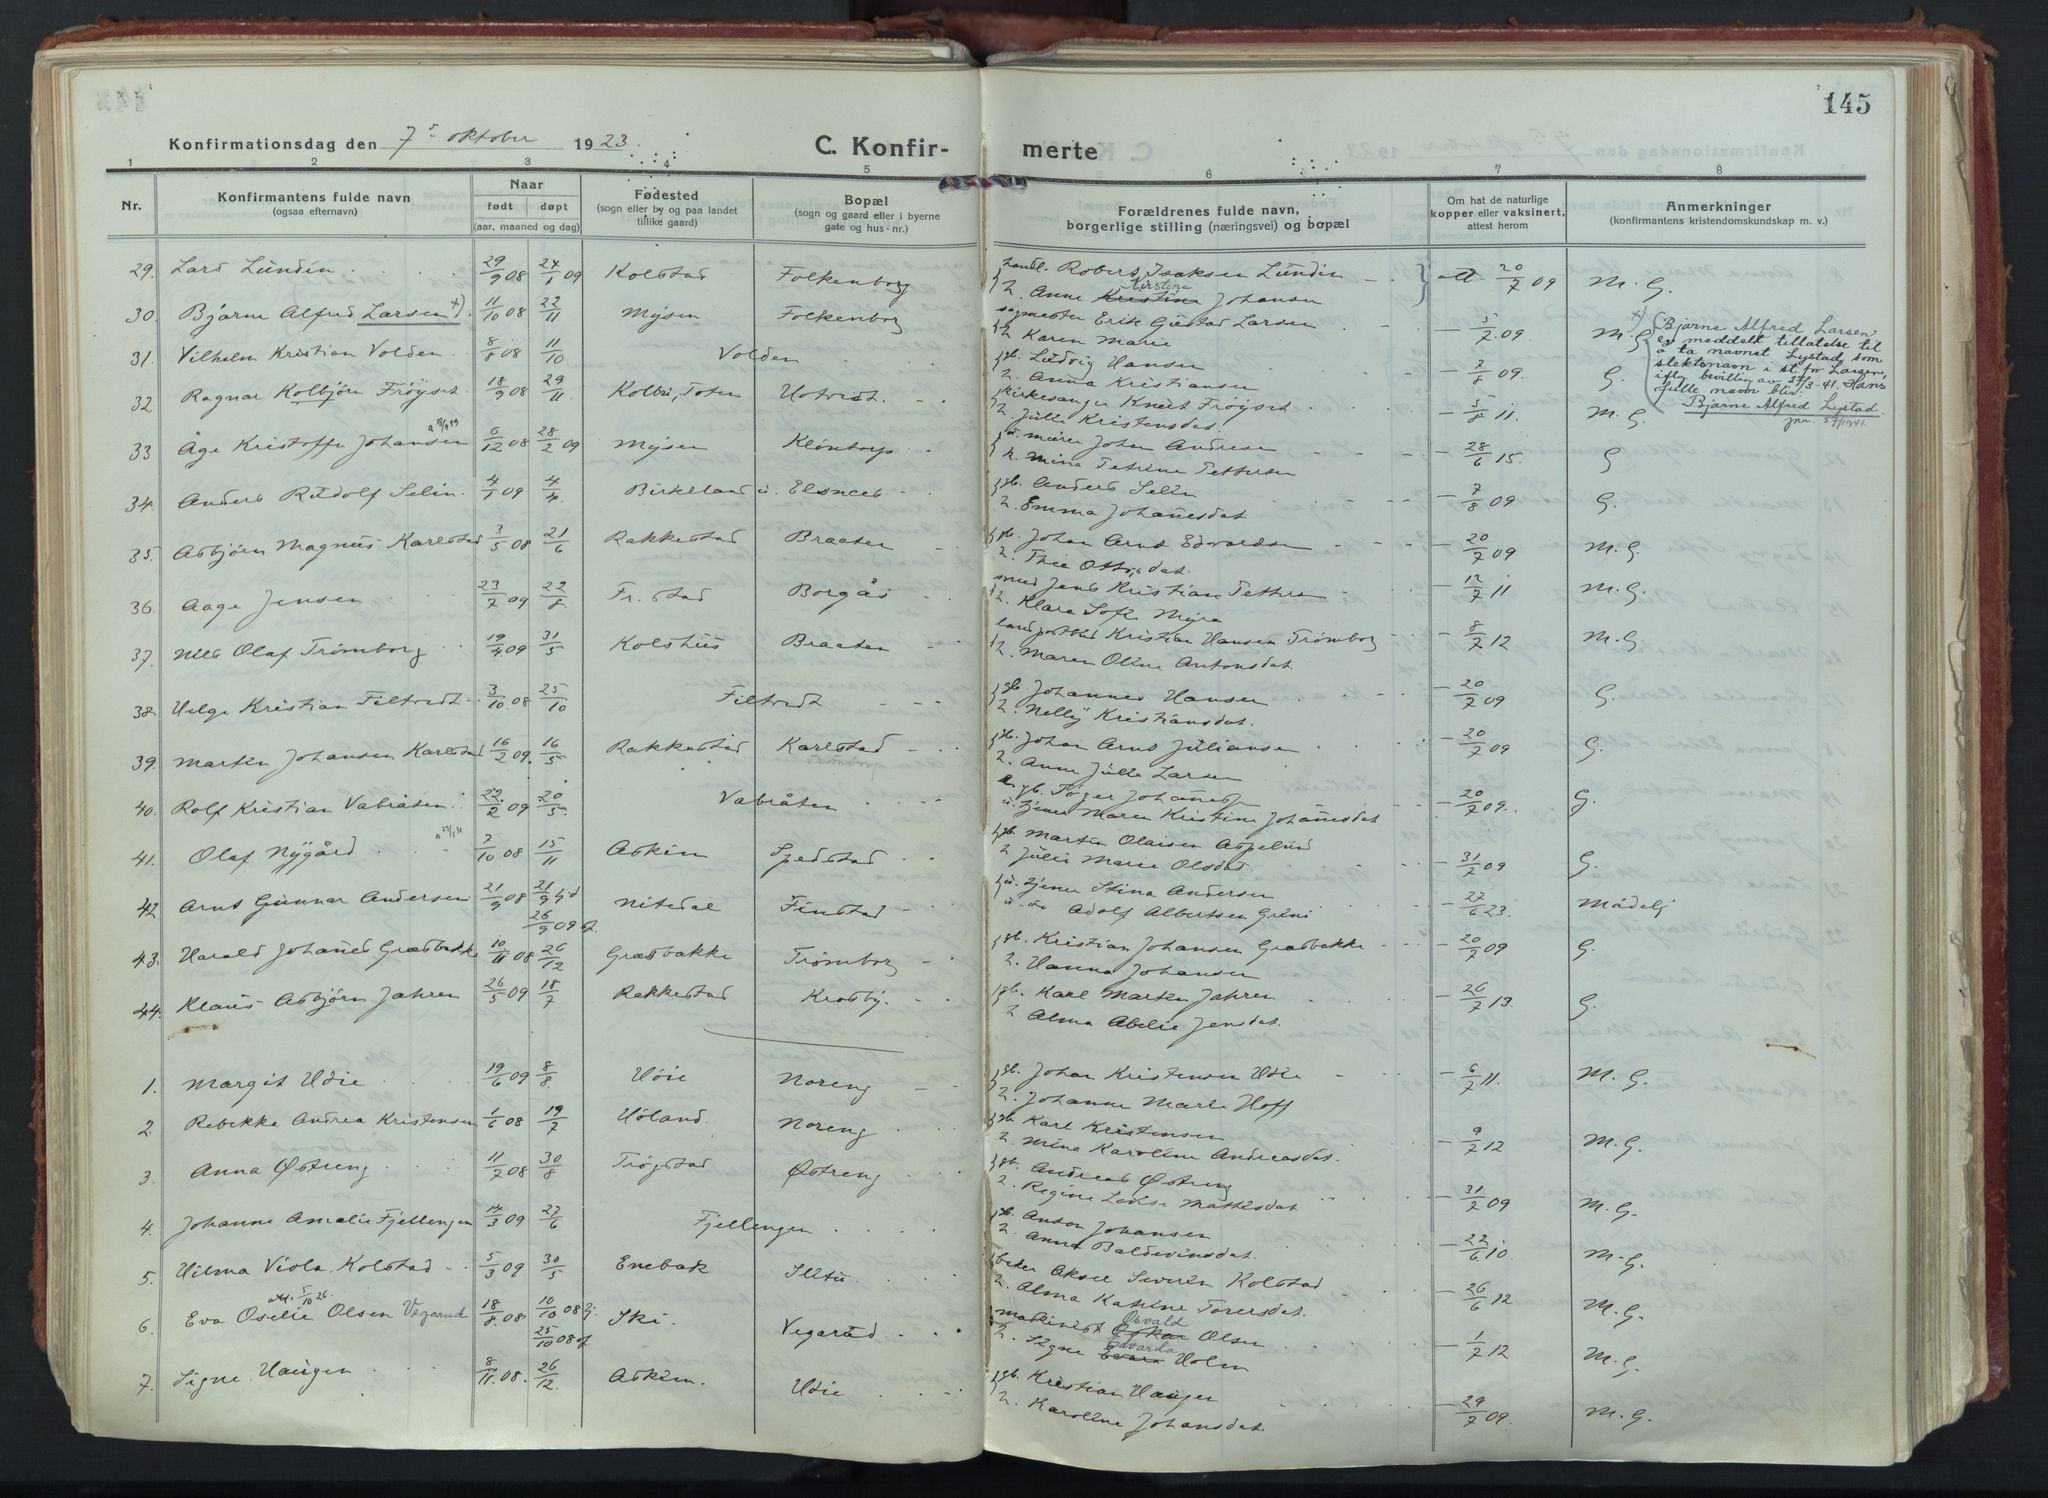 145
Konfirmationsdag den 7 oktober 1923. C. Konfirmerte
1 2 3 4 5 6 7 8
Nr. Konfirmantens fulde navn (ogsaa efternavn) Naar født døpt (aar, maaned og dag) Fødested (sogn eller by og paa landet tillike gaard) Bopæl (sogn og gaard eller i byerne gate og hus-nr.) Forældrenes fulde navn, borgerlige stilling (næringsvei) og bopæl Om hat de naturlige kopper eller vaksinert, attest herom Anmerkninger (konfirmantens kristendomskundskap m. v.)
29. Lars Lundin 29/9 08 24/1 09 Kolstad Folkenborg Robert Isaksen Lundin 20/7 09 M.G.
Anne Kristine Kirstine Johansen
30. Bjarne Alfred Larsen x) 11/10 08 22/11 Mysen Folkenborg Erik Gustav Larsen 5/7 09 M.G.
Karen Marie
x) Bjarne Alfred Larsen
er meddelt tillatelse til
å ta navnet Lystad som
slektsnavn i st. for Larsen,
iflg. bevilling av 27/3-41. Hans
fulle navn blir:
Bjarne Alfred Lystad.
31. Vilhelm Kristian Volden 8/8 08 11/10 Volden gb. Ludvig Hansen 7/8 09. G.
Anna Kristiansen
32 Ragnar Kolbjørn Frøyset 18/9 08 29/11 Kolbu, Toten Hotvedt kirkesanger Knut Frøyset 5/8 11. M.G.
Julie Kristensdat.
33 Åge Kristoffer Johansen 6/12 08 28/2 09 Mysen Kløntorp Johan Andresen 28/6 15. G
Mina Petrine Pettersen
34. Anders Rudolf Selin 4/1 09 4/4 Birkeland Elsnes gb. Anders Selin 7/8 09 G.
Emma Johannesdat.
35. Asbjørn Magnus Karlstad 3/5 08 21/6 Rakkestad Braaten gb. Johan Arnt Edvardsen 20/7 09 M.G.
36. Aage Jensen 23/7 09 22/8 Fr.stad Borgås smed Jens Kristian Pettersen 12/7 11 M.G.
Klara Sofie Myra
37. Nils Olaf Trømborg 19/4 09 31/5 Kolshus Braaten Kristian Hansen Trømborg 8/7 12 M.G.
Maren Oline Antonsdat.
38. Helge Kristian Filtvedt 3/10 08 25/10 Filtvedt gb. Johannes Hansen 20/7 09 G.
Nelly Kristiansdat.
39. Martin Johansen Karlstad 16/2 09. 16/5 Rakkestad Karlstad gb. Johan Arnt Juliansen 20/7 09 G.
Anne Julie Larsen
40. Rolf Kristian Vabråten 22/2 09 20/5 Vabråten 20/7 09. G.
tjener Maren Kristine Johannesdat
41. Olaf Nygård 7/10 08 15/11 Askim Spedstad gb. Martin Olaisen Aspelund 31/7 09 G.
Julie Marie Olsdat.
42 Arnt Gunnar Andersen 21/9 08 21/9 hjd 26/9 09 Nitedal Finstad tjener Stina Andersen 27/6 23. Mådelig
Adolf Albertsen
43. Harald Johannes Græsbakke 10/11 08 26/12 Græsbakke Trømborg gb. Kristian Johansen Græsbakke 20/7 09 G.
Hanna Johansen
44. Klaus Asbjørn Jahren 26/5 09 18/7 Rakkestad Krosby. gb. Karl Martin Jahren 26/7 13. G.
Alma Abelie Jensdat.
1. Margit Udie 19/6 09 8/8 Udie Noreng gb. Johan Kristensen Udie 6/7 11. M.G.
Johanne Marie Hoff
2. Rebekke Andrea Kristensen 1/6 08 19/7 Høland. Noreng gb. Karl Kristensen 9/7 12 M.G.
Mina Karoline Andreasdat.
3. Anna Østreng 11/7 08 30/8 Trøgstad Østreng gb. Andreas Østreng 31/7 09 M.G.
Regine Lovise Mathisdat
4. Johanne Amalie Fjellengen 14/3 09 27/6 Fjellengen gb. Anton Johansen 22/6 10. M.G.
Anna Baldevinsdat.
5. Hilma Viola Kolstad 5/3 09 30/5 Enebak Slitu beker Aksel Severin Kolstad 26/6 12 M.G.
Alma Katrine Torersdat.
6. Eva Oselie Olsen Vegarud 18/8 08 10/10 08 hj. 25/10 08 Ski. Vegarud maskinist Oskar Osvald Olsen 1/7 12 M.G.
Signe Edvarda Holm
7. Signe Haugen 8/11 08. 26/12 Askim. Udie gb. Kristian Haugen 29/7 09. M.G.
Karoline Johansdat.